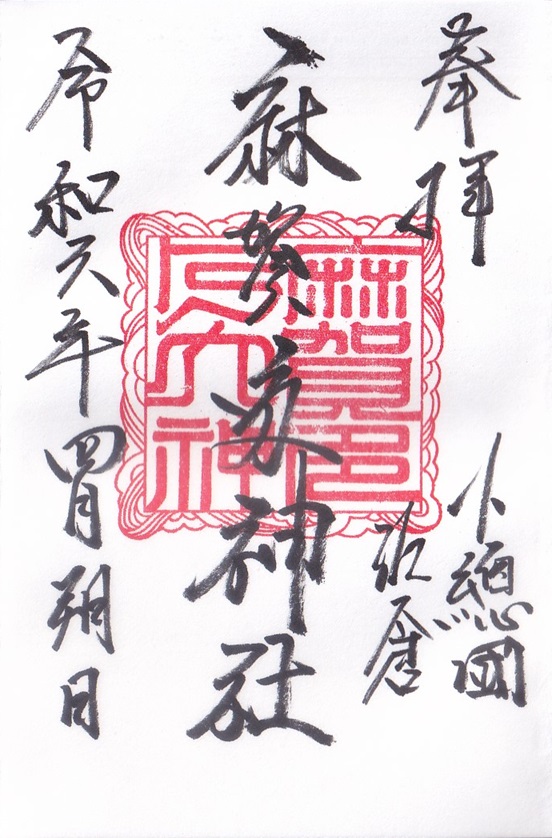 奉拝
下總國
佐倉
麻賀多神社
令和六年四月朔日
麻賀多
大神